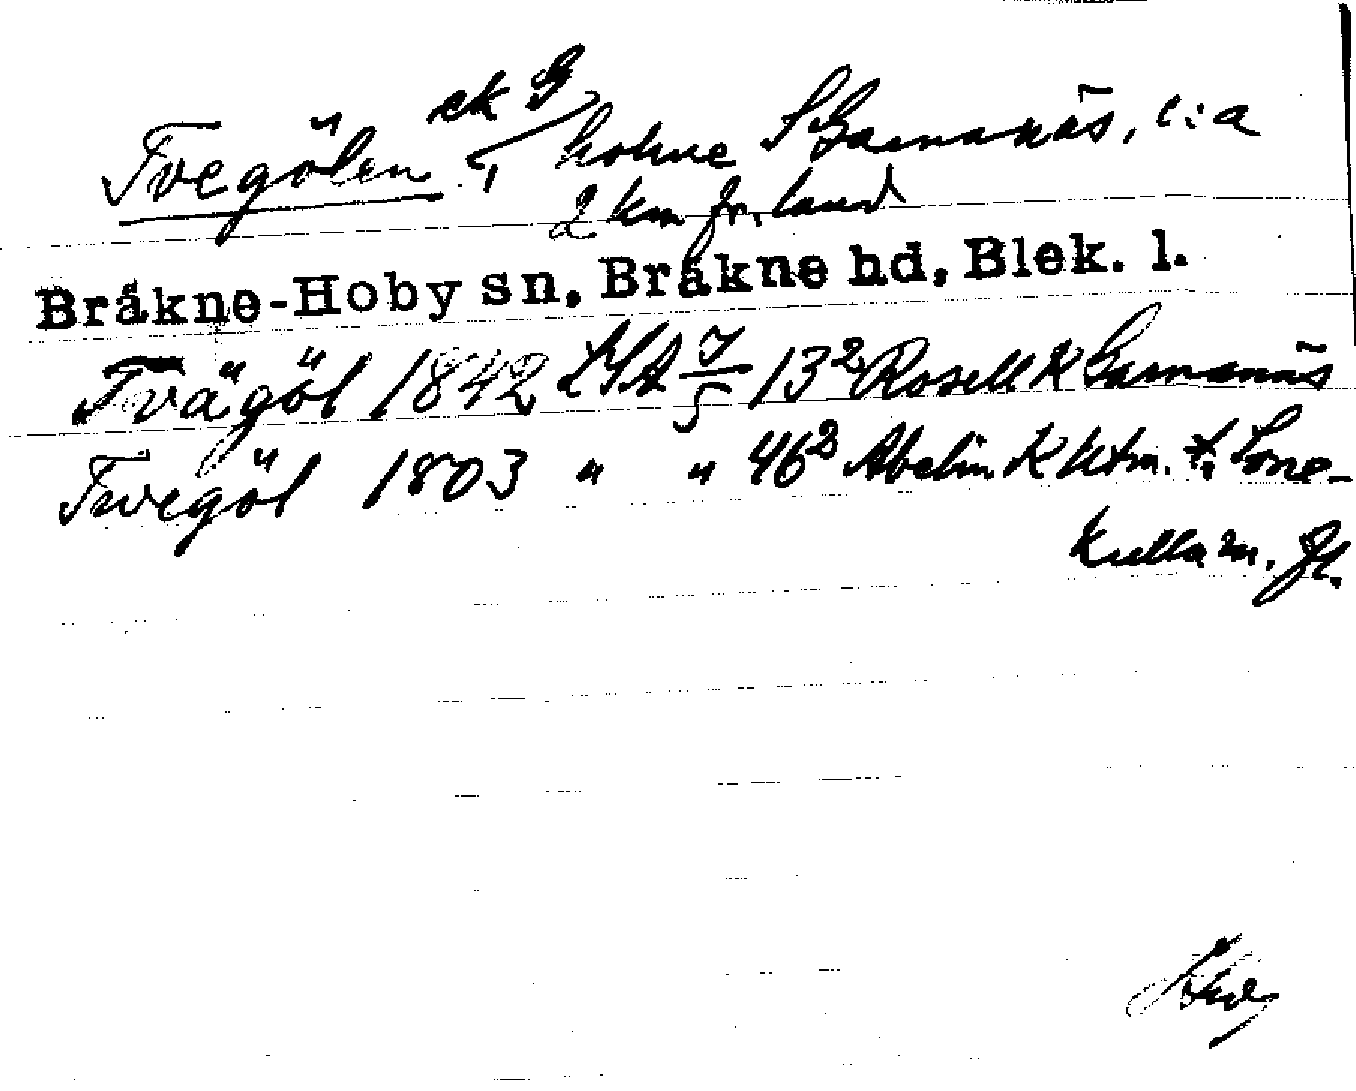 ek G
Tvegölen holme S Garnanäs, c:a
2 km fr. land
Bräkne-Hoby sn. Bräkne hd, Blek. l.
Tvägöl 1842 LSA 7/5 13² Rosell K Garnanäs
Tvegöl 1803 " " 46² Abelin K Utm. t. Sone-
kulla m. fl.